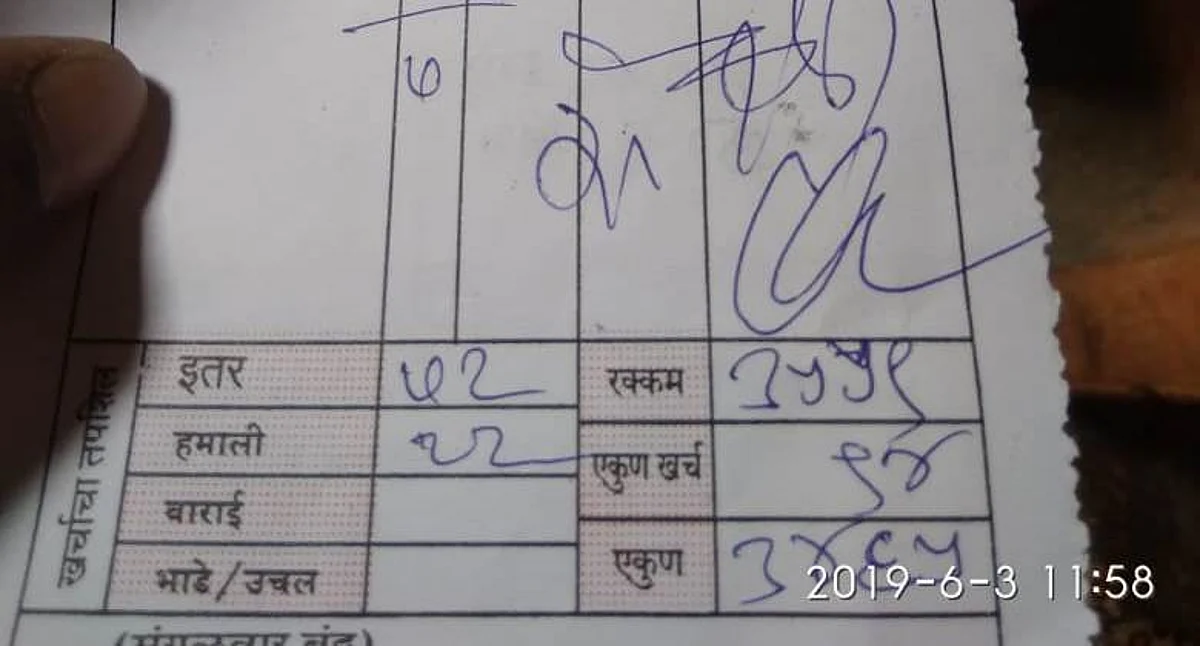 ७
खर्चाचा तपशिल
इतर ७२ रक्कम ३५५९
हमाली २२ एकुण खर्च ९४
वाराई
भाडे/उचल एकुण ३४६५
(मंगळवार बंद)
2019-6-3 11:58